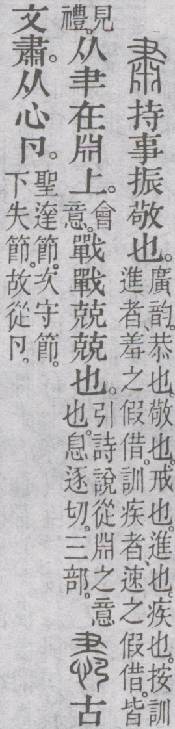 肅持事振敬也。廣韵。恭也。敬也。戒也。進也。疾也。按訓
進者、羞之假借。訓疾者、速之假借。皆
見
禮。
从聿在𣶒上。會
意。
戰戰兢兢也。引詩說從𣶒之意
也。息逐切。三部。
古
文肅。从心卪。聖達節。次守節。
下失節。故從卪。